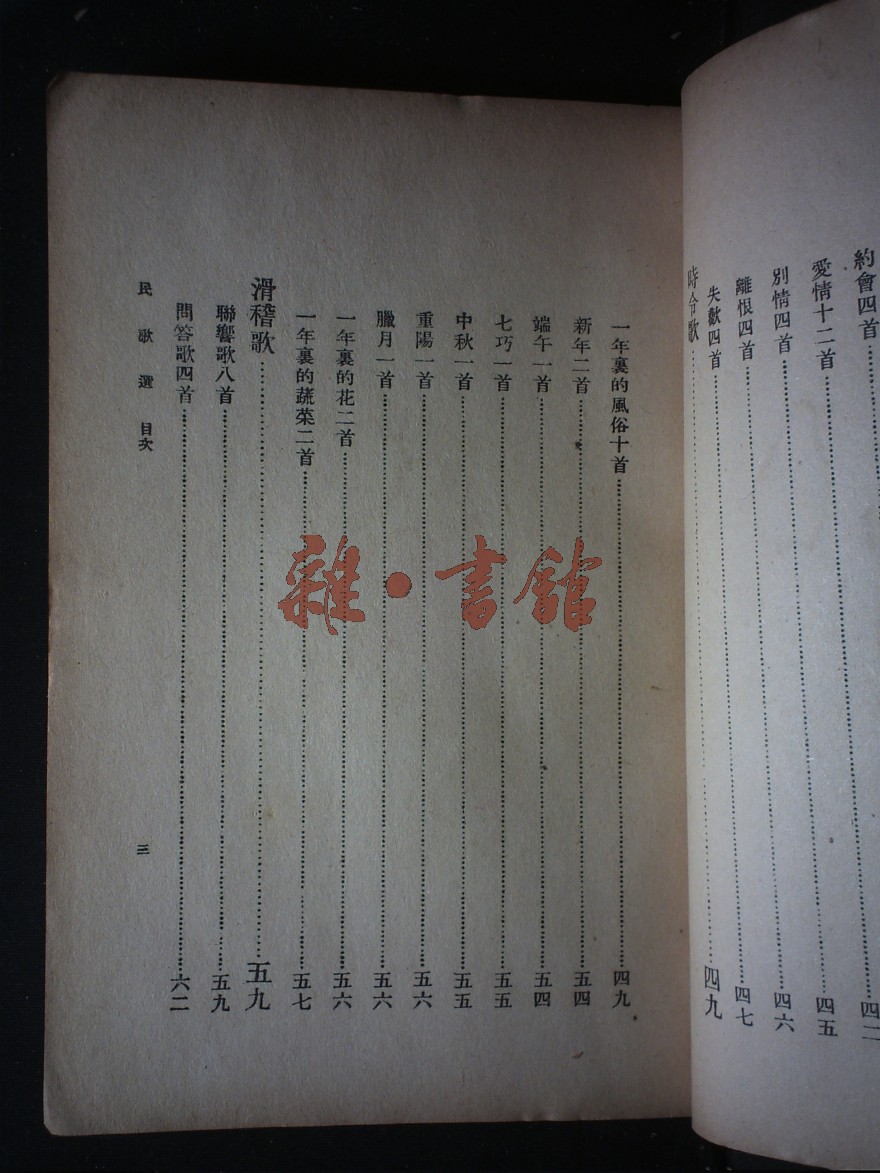 約會四首……四二
愛情十二首……四五
別情四首……四六
離恨四首……四七
失歡四首
時令歌……四九
一年裏的風俗十首……四九
新年二首……五四
端午一首……五四
七巧一首……五五
中秋一首……五五
重陽一首……五六
臘月一首……五六
一年裏的花二首……五六
一年裏的蔬菜二首……五七
滑稽歌……五九
聯響歌八首……五九
問答歌四首……六二
民歌選 目次
三
雜·書館